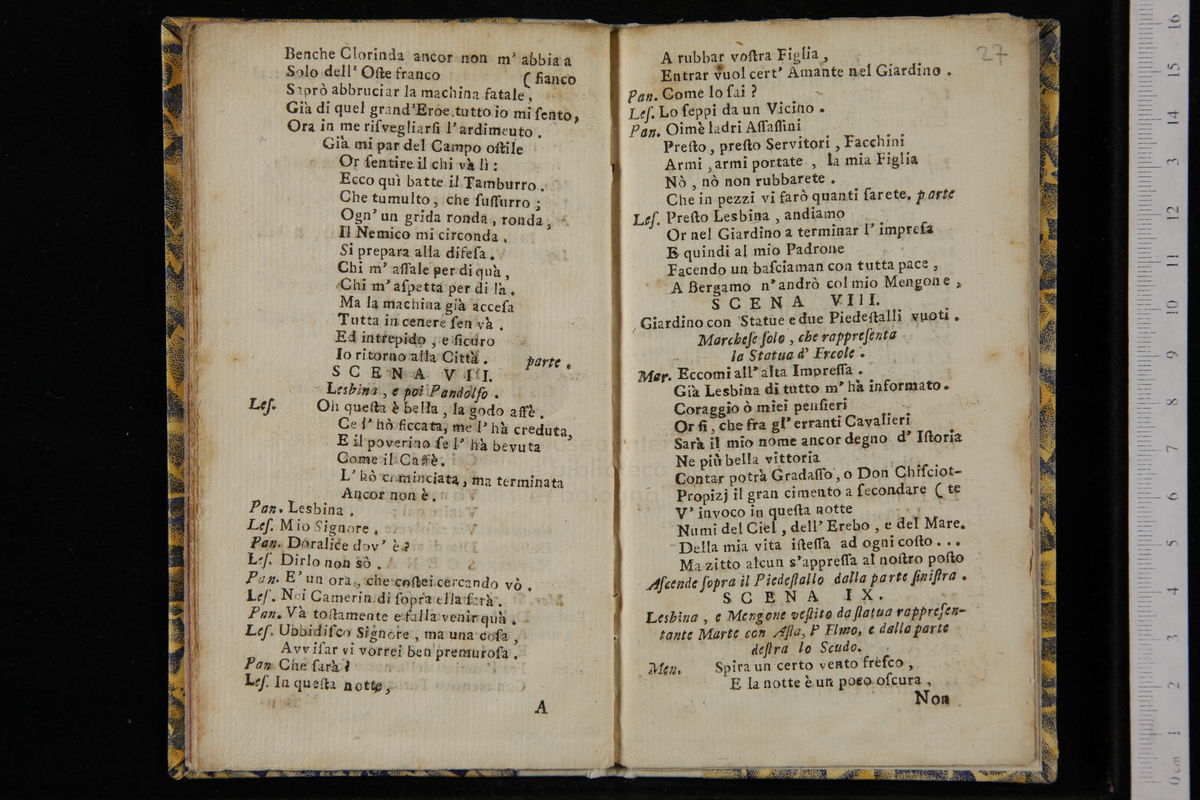 Benche Clorinda ancor non m' abbia a
Solo dell' Oſte franco ( fianco
Saprò abbruciar la machina fatale,
Già di quel grand'Eroe tutto io mi ſento,
Ora in me riſvegliarſi l'ardimeuto .
Già mi par del Campo oſtile
Or ſentire il chi và lì :
Ecco quì batte il Tamburro .
Che tumulto, che ſuſſurro ;
Ogn' un grida ronda, ronda,
Il Nemico mi circonda .
Si prepara alla difeſa .
Chi m' aſſale per di quà,
Chi m'aſpetta per di là .
Ma la machina già acceſa
Tutta in cenere ſen và .
Ed intrepido, e ſicuro
Io ritorno alla Città . parte .
SCENA VII.
Lesbina, e poi Pandolfo .
Leſ. Oh queſta è bella, la godo affè .
Ce l' hò ficcata, me l' hà creduta,
E il poverino ſe l' hà bevuta
Come il Caffè .
L' hò cominciata, ma terminata
Ancor non è .
Pan. Lesbina .
Leſ. Mio Signore .
Pan. Doralice dov' è ?
Leſ. Dirlo non sò .
Pan. E' un ora, che coſtei cercando vò .
Leſ. Nei Camerin di ſopra ella ſarà .
Pan. Và toſtamente e falla venir quà .
Leſ. Ubbidiſco Signore, ma una coſa,
Avviſar vi vorrei ben premuroſa .
Pan Che ſarà ?
Leſ. In queſta notte,
A
27
A rubbar voſtra Figlia,
Entrar vuol cert' Amante nel Giardino .
Pan. Come lo ſai ?
Leſ. Lo ſeppi da un Vicino .
Pan. Oimè ladri Aſſaſſini
Preſto, preſto Servitori, Facchini
Armi, armi portate, la mia Figlia
Nò, nò non rubbarete .
Che in pezzi vi farò quanti ſarete. parte
Leſ. Preſto Lesbina, andiamo
Or nel Giardino a terminar l' impreſa
E quindi al mio Padrone
Facendo un baſciaman con tutta pace,
A Bergamo n'andrò col mio Mengone,
SCENA VIII.
Giardino con Statue e due Piedeſtalli vuoti .
Marcheſe ſolo, che rappreſenta
la Statua d' Ercole .
Mar. Eccomi all' alta Impreſſa .
Già Lesbina di tutto m' hà informato .
Coraggio ò miei penſieri
Or ſi, che fra gl' erranti Cavalieri
Sarà il mio nome ancor degno d' Iſtoria
Ne più bella vittoria
Contar potrà Gradaſſo, o Don Chiſciot-
Propizj il gran cimento a ſecondare ( te
V' invoco in queſta notte
Numi del Ciel, dell' Erebo, e del Mare.
Della mia vita iſteſſa ad ogni coſto . . .
Ma zitto alcun s'appreſſa al noſtro poſto
Aſcende ſopra il Piedeſtallo dalla parte ſiniſtra .
SCENA IX.
Lesbina, e Mengone veſtito da ſtatua rappreſen-
tante Marte con Aſta, l' Elmo, e dalla parte
deſtra lo Scudo.
Men. Spira un certo vento freſco,
E la notte è un poco oſcura,
Non